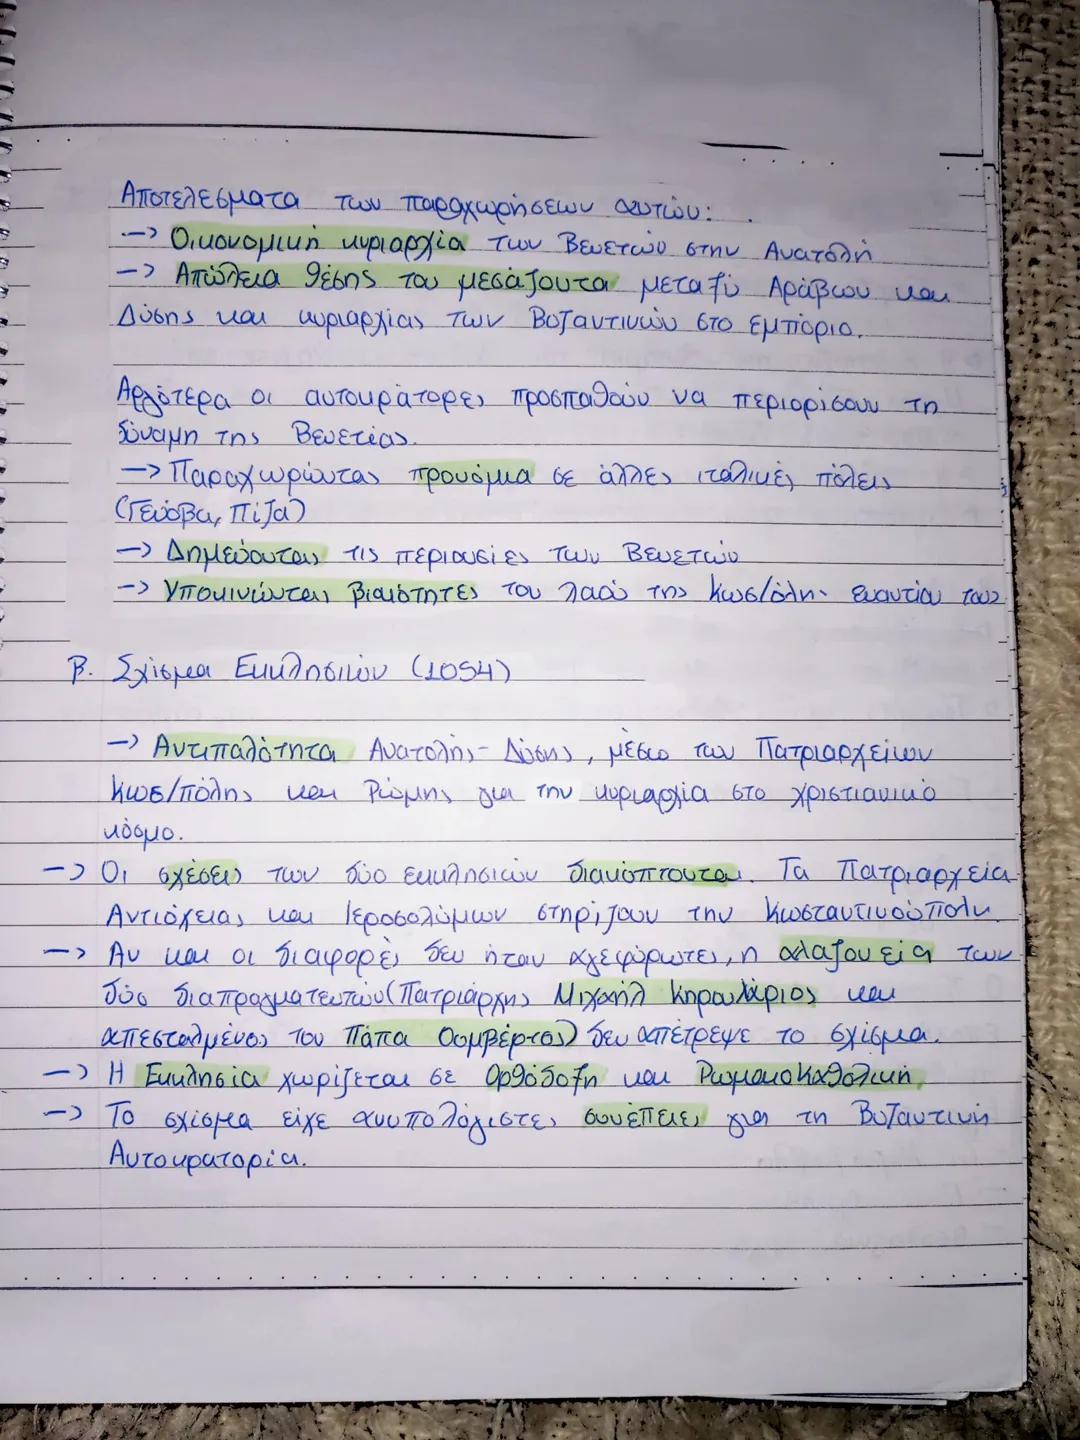 Αποτελέσματα των παραχωρήσεων αυτών:
-> Οικονομική κυριαρχία των Βενετών στην Ανατολή
-> Απώλεια θέσης του μεσάζοντα μεταξύ Αράβων και
Δύσης και κυριαρχίας των Βυζαντινών στο εμπόριο.
Αργότερα οι αυτοκράτορες προσπαθούν να περιορίσουν τη
δύναμη της Βενετίας.
-> Παραχωρώντας προνόμια σε άλλες ιταλικές πόλεις
(Γένοβα, Πίζα)
-> Δημεύοντας τις περιουσίες των Βενετών
-> Υποκινώντας βιαιότητες του λαού της Κωσ/όλης εναντίον τους
Β. Σχίσμα Εκκλησιών (1054)
-> Αντιπαλότητα Ανατολής - Δύσης, μέσω των Πατριαρχείων
Κωσ/πόλης και Ρώμης για την κυριαρχία στο χριστιανικό
κόσμο.
-> Οι σχέσεις των δύο εκκλησιών διακόπτονται. Τα Πατριαρχεία
Αντιόχειας και Ιεροσολύμων στηρίζουν την Κωσταντινούπολη.
-> Αν και οι διαφορές δεν ήταν αγεφύρωτες, η αλαζονεία των
δύο διαπραγματευτών (Πατριάρχης Μιχαήλ Κηρουλάριος και
απεσταλμένος του Πάπα Ουμβέρτος) δεν απέτρεψε το σχίσμα.
-> Η Εκκλησία χωρίζεται σε Ορθόδοξη και Ρωμαιοκαθολική.
-> Το σχίσμα είχε ανυπολόγιστες συνέπειες για τη Βυζαντινή
Αυτοκρατορία.